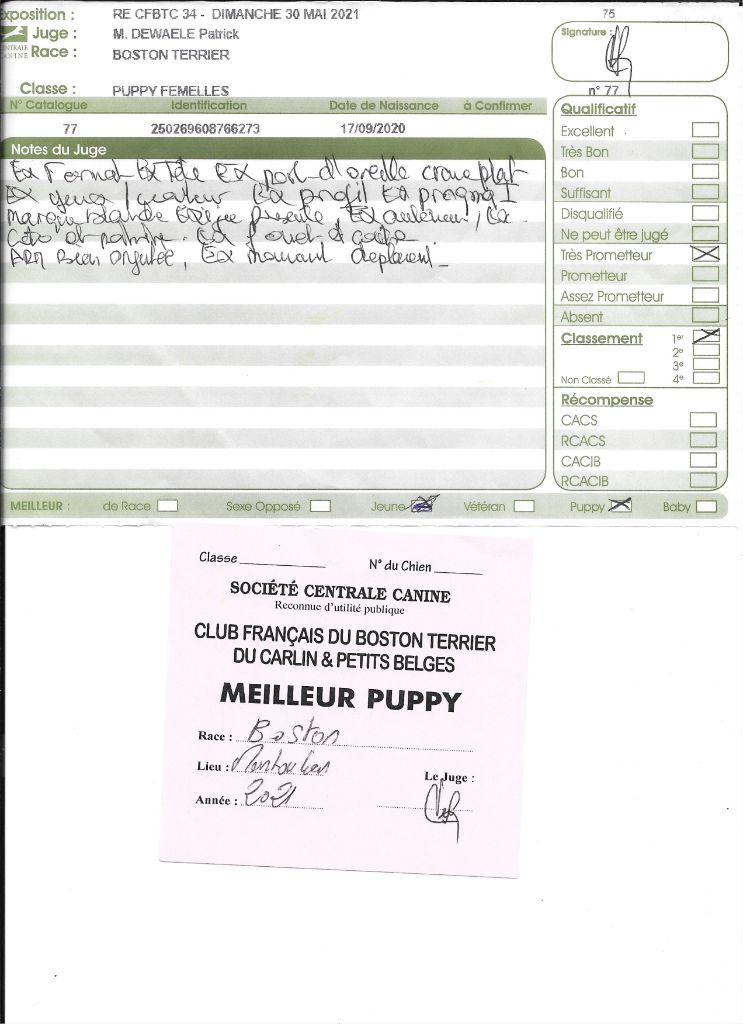 Exposition : RE CFBTC 34 - DIMANCHE 30 MAI 2021
75
Juge : M. DEWAELE Patrick
Signature :
CENTRALE CANINE
Race : BOSTON TERRIER
Classe : PUPPY FEMELLES
n° 77
N° Catalogue Identification Date de Naissance à Confirmer
77 250269608766273 17/09/2020
Notes du Juge
Ex Format Ex Tête Ex port d'oreille crane plat
Ex yeux / couleur Ex profil Ex
Ex
Ex fouet
Bien Ex mouvement
Qualificatif
Excellent
Très Bon
Bon
Suffisant
Disqualifié
Ne peut être jugé
Très Prometteur
Prometteur
Assez Prometteur
Absent
Classement 1er
2e
3e
Non Classé 4e
Récompense
CACS
RCACS
CACIB
RCACIB
MEILLEUR : de Race Sexe Opposé Jeune Vétéran Puppy Baby
Classe N° du Chien
SOCIÉTÉ CENTRALE CANINE
Reconnue d'utilité publique
CLUB FRANÇAIS DU BOSTON TERRIER
DU CARLIN & PETITS BELGES
MEILLEUR PUPPY
Race : Boston
Lieu : Montauban
Le Juge :
Année : 2021